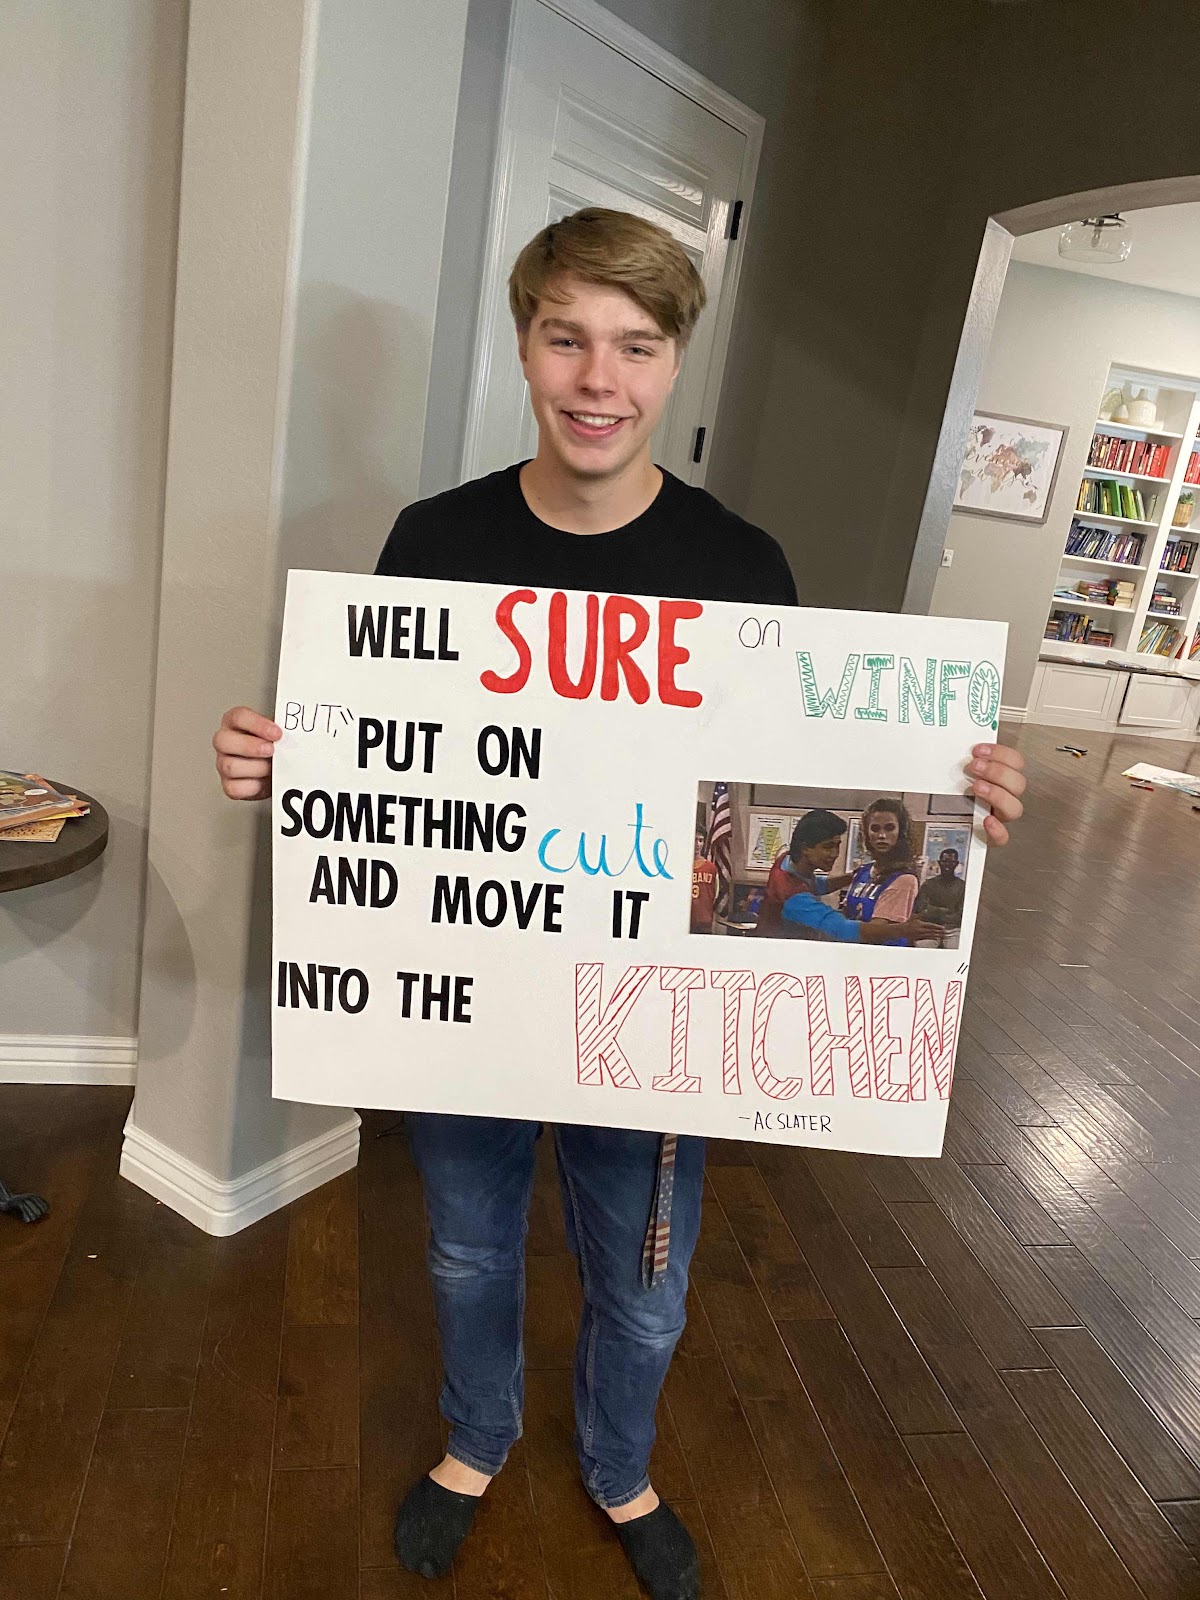 WELL SURE on WINFO.
BUT, "PUT ON
SOMETHING cute
AND MOVE IT
INTO THE KITCHEN"
-AC SLATER